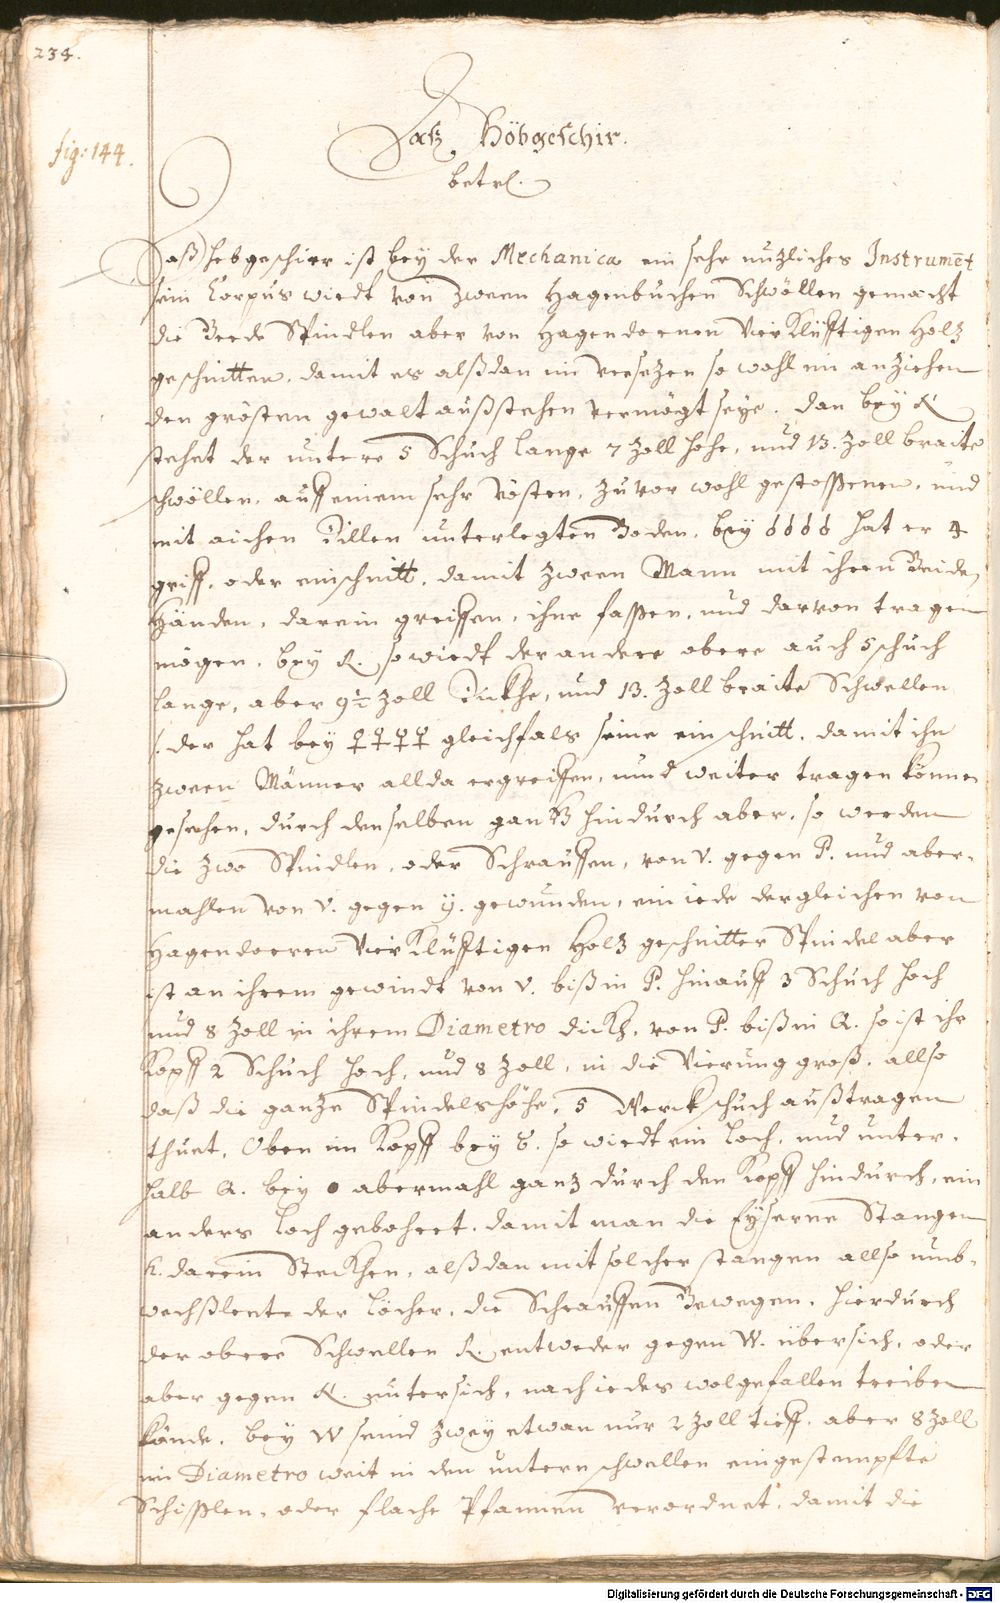 234.
fig: 144.
Das Höbgeschir.
betrl.
Daß hebgeschirr ist bey der Mechanica ein sehr nuzliches Instrument
sein Corpus wirdt von zween Hagenbuchen Schwöllen gemacht
die Beede Spindlen aber von Hagendornen Vier Klüfftigen Holz
geschnitten, damit es alßdan im versezen so wohl im anziehen
den grösten gewalt außstehen vermögt seye. Dan bey X
stehet der untere 5 Schuch lange 7 Zoll hohe, und 13. Zoll braite
schwöllen, auff einem sehr Vösten, zuvor wohl gestossenen, und
mit aichen Dillen unterlegten Boden, bey 6666 hat er 4
griff, oder einschnitt, damit zween Mann mit ihren Beiden
Händen, darein greiffen, ihne fassen, und darvon tragen
mögen. bey R. so wirdt der andere obere auch 5 schuch
lange, aber 9½ Zoll dickhe, und 13. Zoll braite Schwellen
/: der hat bey ♀♀♀♀ gleichfals seine einschnitt, damit ihn
zween Männer allda ergreiffen, und weiter tragen könne
gesehen, durch denselben gantz hindurch aber, so werden
die zwo Spindlen, oder Schrauffen, von V. gegen P. und aber-
mahlen von V. gegen y. gewunden, ein iede dergleichen von
Hagendornen Vier Klüfftigen Holz geschnitter Spindel aber
ist an ihrem gewindt von V. biß in P. hinauff 3 Schuch hoch
und 8 Zoll in ihrem Diametro dickh, von P. biß in Q. so ist ihr
Kopff 2 Schuch hoch, und 8 Zoll, in die Vierung groß, allso
daß die ganze Spindelshöhe, 5 Werckschuch außtragen
thuet. Oben im Kopff bey so wirdt ein loch, und unter-
halb Q. bey abermahl ganz durch den Kopff hindurch, ein
anders loch gebohret, damit man die Eyserne Stangen
darein Steckhen, alßdan mit solcher stangen allso umb-
wechßlente der löcher, die Schrauffen Bewegen, hierdurch
der obere Schwellen R. entweder gegen W. übersich, oder
aber gegen X. untersich, nach iedes wolgefallen treiben
könde. bey W seind zwey etwan nur 2 Zoll tieff, aber 8 Zoll
im Diametro weit in den untern schwellen eingestempffte
Schißlen, oder flache Pfannen verordnet, damit die
Digitalisierung gefördert durch die Deutsche Forschungsgemeinschaft - DFG